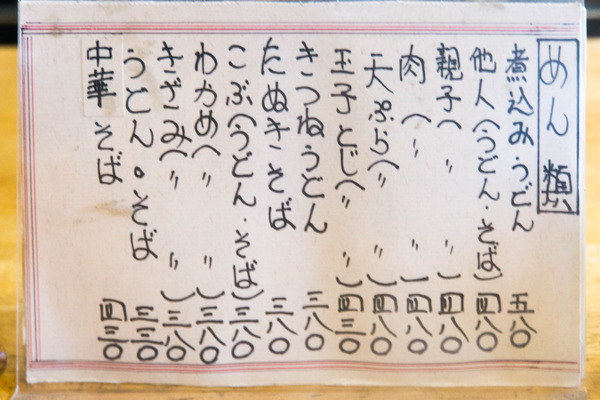 めん類
煮込みうどん 五八〇
他人(うどん・そば) 四八〇
親子(〃 〃) 四八〇
肉(〃 〃) 四八〇
天ぷら(〃 〃) 四八〇
玉子とじ(〃 〃) 四三〇
きつねうどん 三八〇
たぬきそば 三八〇
こぶ(うどん・そば) 三八〇
わかめ(〃 〃) 三八〇
きざみ(〃 〃) 三八〇
うどん。そば 三三〇
中華そば 四三〇